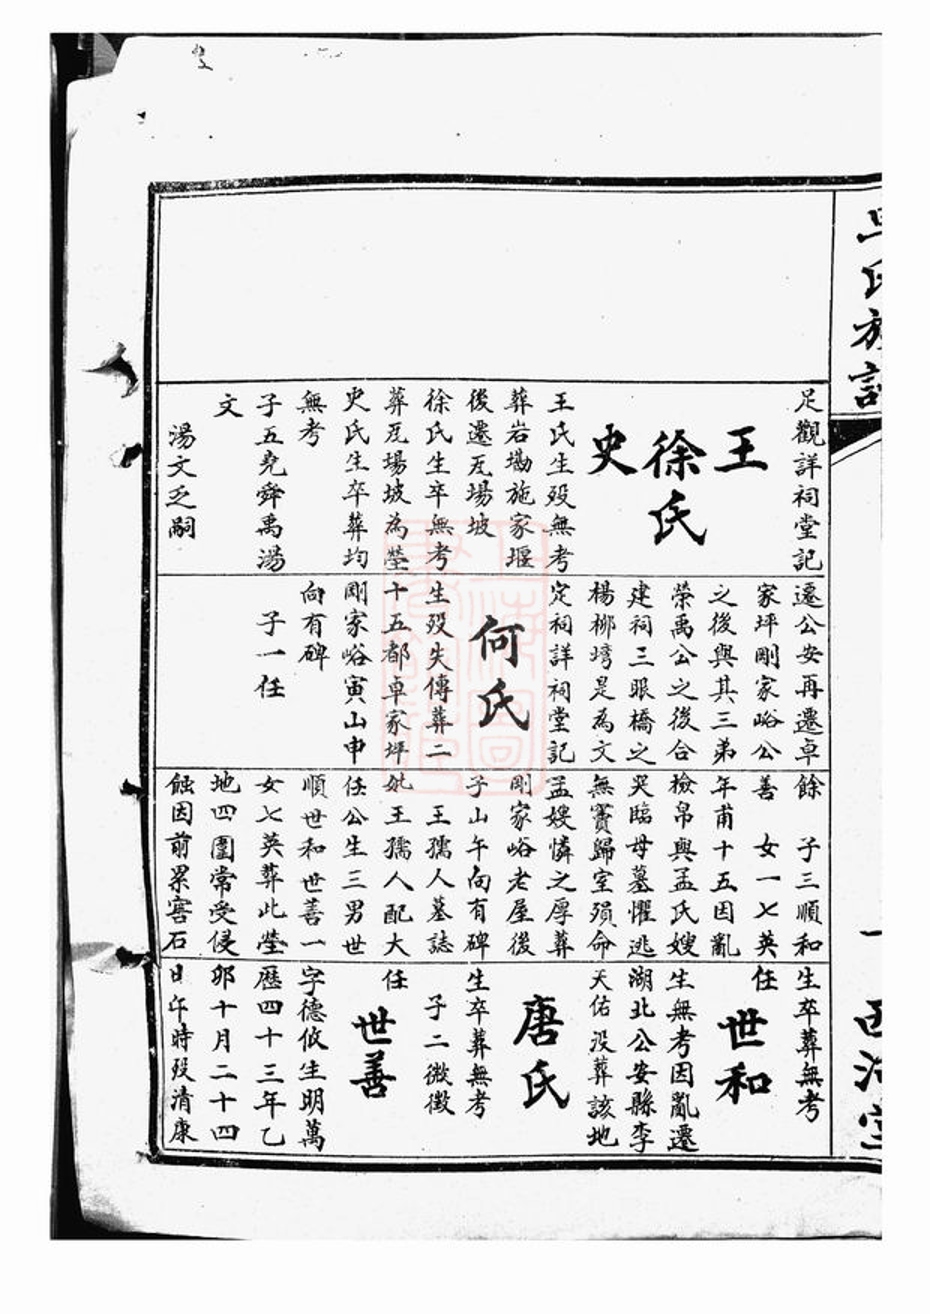 氏族
西
足觀詳祠堂記
王
徐氏
史
王氏生歿無考
葬岩塲施家堰
後遷瓦場坡
徐氏生卒無考
葬瓦場坡為塋
史氏生卒葬均
無考
子五堯舜禹湯
文
湯文乏嗣
遷公安再遷卓
家坪剛家峪公
之後與其三弟
榮禹公之後合
建祠三眼橋之
楊柳塆是為文
定祠詳祠堂記
何氏
生歿失傳葬二
十五都卓家坪
剛家峪寅山申
向有碑
子一任
餘 子三順和
善 女一七英
年甫十五因亂
檢帛與孟氏嫂
哭臨母墓懼逃
無賓歸室殞命
孟嫂憐之厚葬
剛家峪老屋後
子山午向有碑
王孺人墓誌
妣王孺人配大
任公生三男世
順世和世善一
女七英葬此塋
地四圍常受侵
蝕因前累窖石
生卒葬無考
任
世和
生無考因亂遷
湖北公安縣李
天佑沒葬該地
唐氏
生卒葬無考
子二微徵
任
世善
字德攸生明萬
曆四十三年乙
卯十月二十四
日午時歿清康